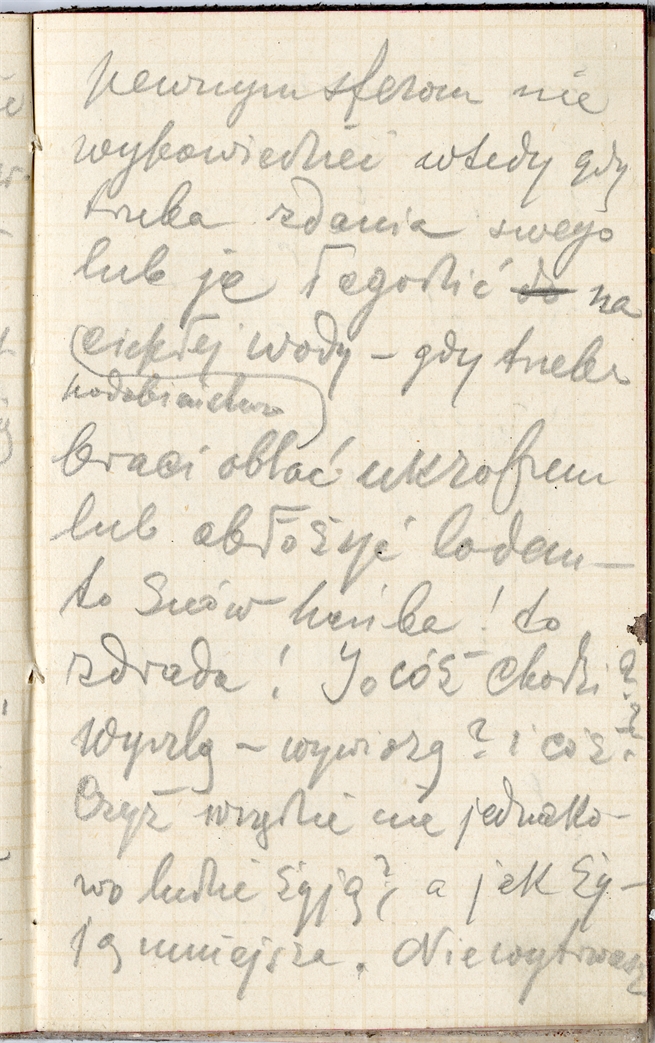 pewnym sferom nie
wypowiedzieć wtedy gdy
trzeba zdania swego
lub je łagodzić do na
ciepłej wody – gdy trzeba
podobieństwo
braci oblać ukropem
lub obłożyć lodem –
to znów hańba! to
zdrada! I o cóż chodzi?
wyszlą – wywiozą? i cóż??
Czyż wszędzie nie jednako-
wo ludzie żyją? a jak ży-
ją mniejsza. Nie wytrwasz